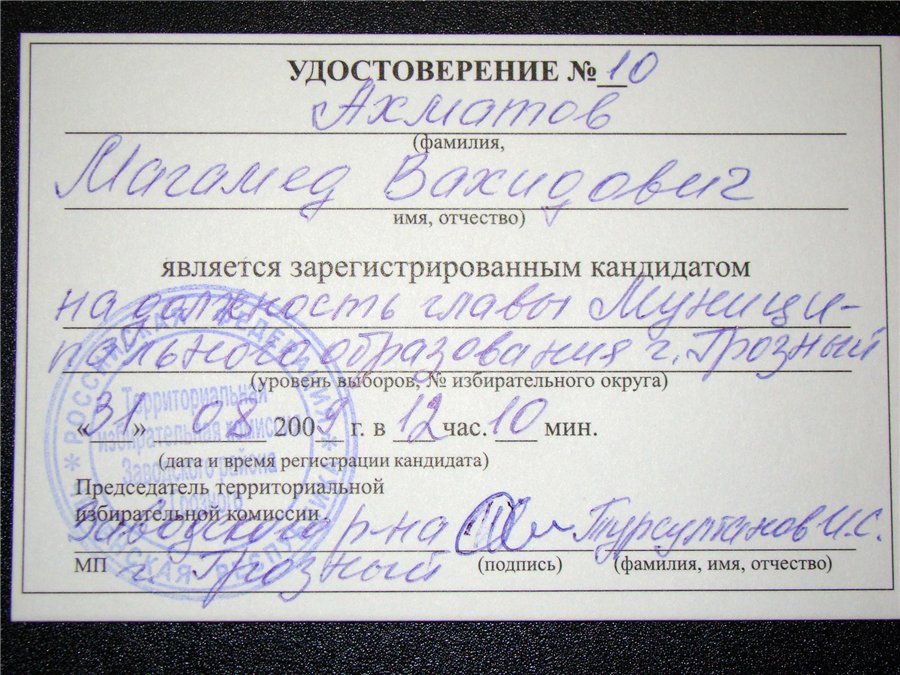 УДОСТОВЕРЕНИЕ № 10
Ахматов
(фамилия,
Магамед Вахидович
имя, отчество)
является зарегистрированным кандидатом
на должность главы Муници-
пального образования г. Грозный
(уровень выборов, № избирательного округа)
«31» 08 2009 г. в 12 час. 10 мин.
(дата и время регистрации кандидата)
Председатель территориальной
избирательной комиссии
Заводского р-на Турсултанов И.С.
г. Грозный
МП (подпись) (фамилия, имя, отчество)
РОССИЙСКАЯ ФЕДЕРАЦИЯ
Территориальная
избирательная комиссия
Заводского района
г. Грозного